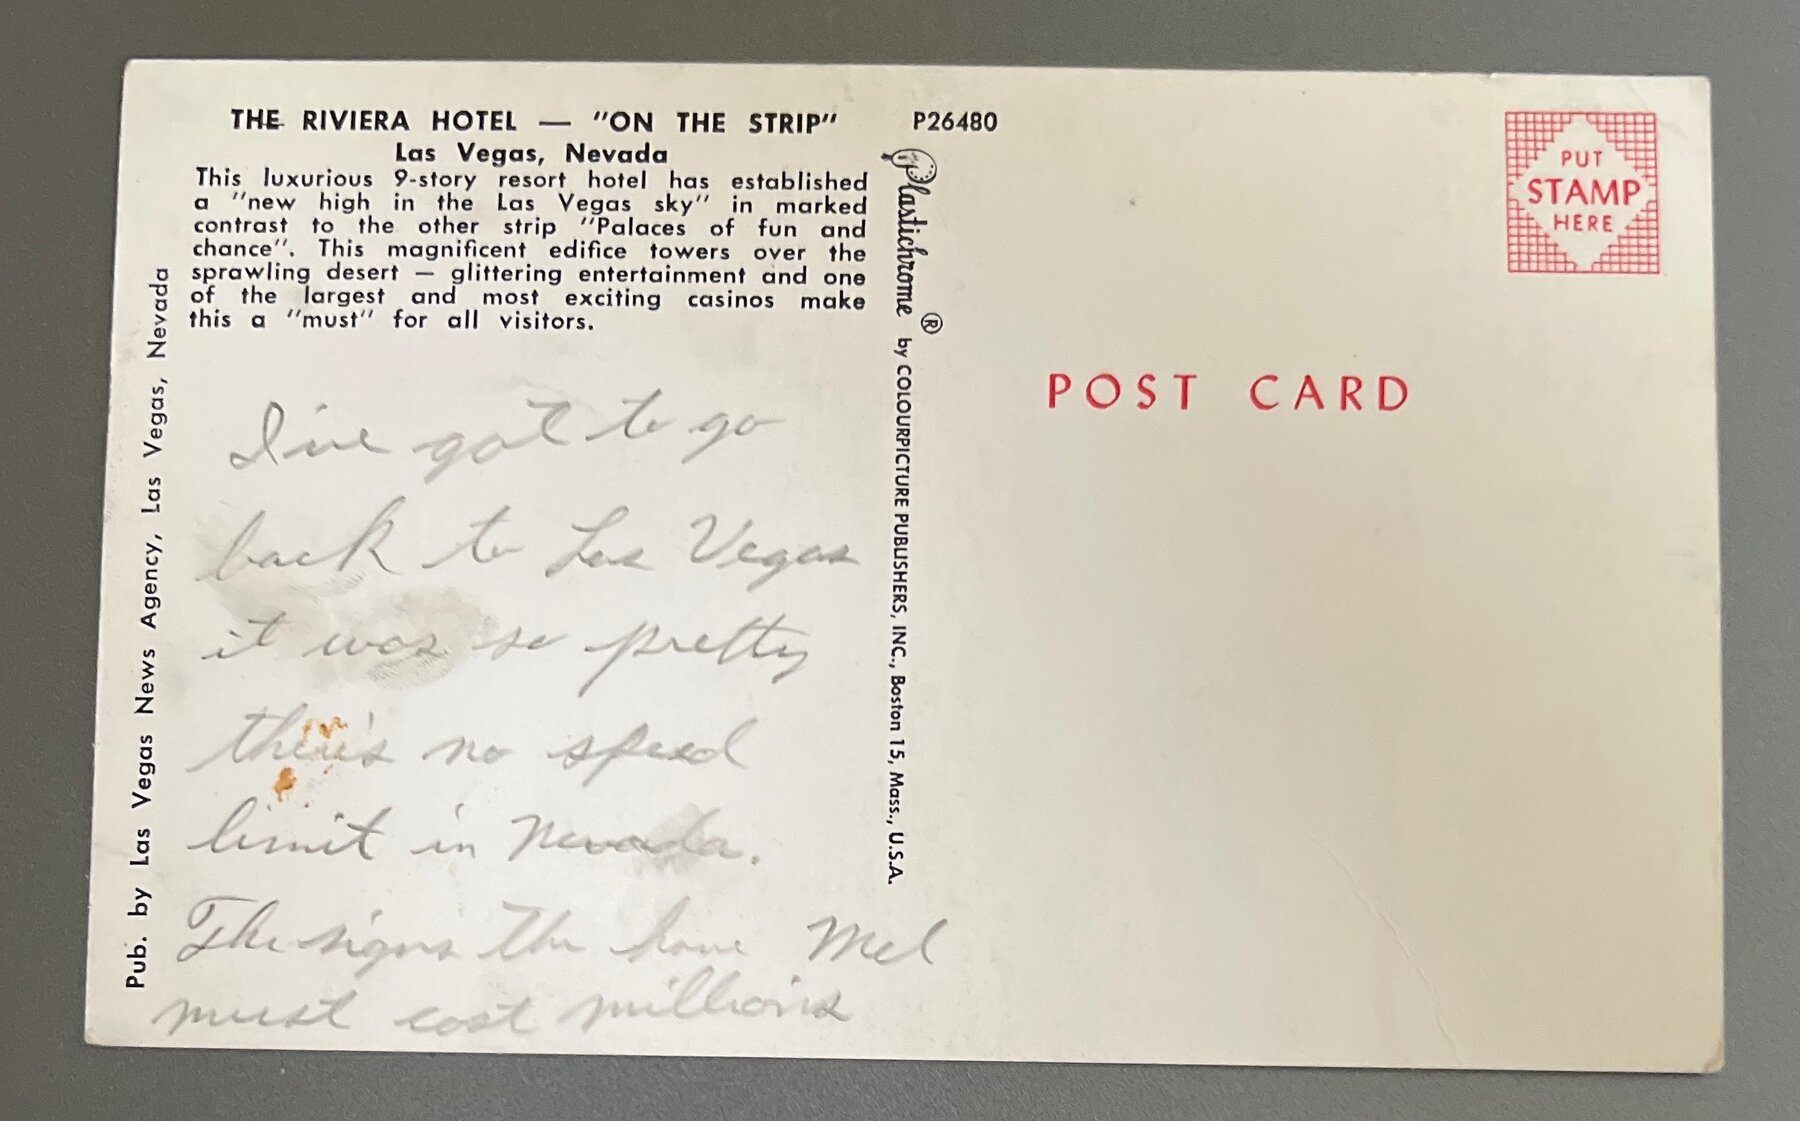 THE RIVIERA HOTEL — "ON THE STRIP"
Las Vegas, Nevada
This luxurious 9-story resort hotel has established
a "new high in the Las Vegas sky" in marked
contrast to the other strip "Palaces of fun and
chance". This magnificent edifice towers over the
sprawling desert — glittering entertainment and one
of the largest and most exciting casinos make
this a "must" for all visitors.
I've got to go
back to Las Vegas
it was so pretty
there's no speed
limit in Nevada.
The signs the have Mel
must cost millions
Pub. by Las Vegas News Agency, Las Vegas, Nevada
P26480
Plastichrome ® by COLOURPICTURE PUBLISHERS, INC., Boston 15, Mass., U.S.A.
PUT
STAMP
HERE
POST CARD